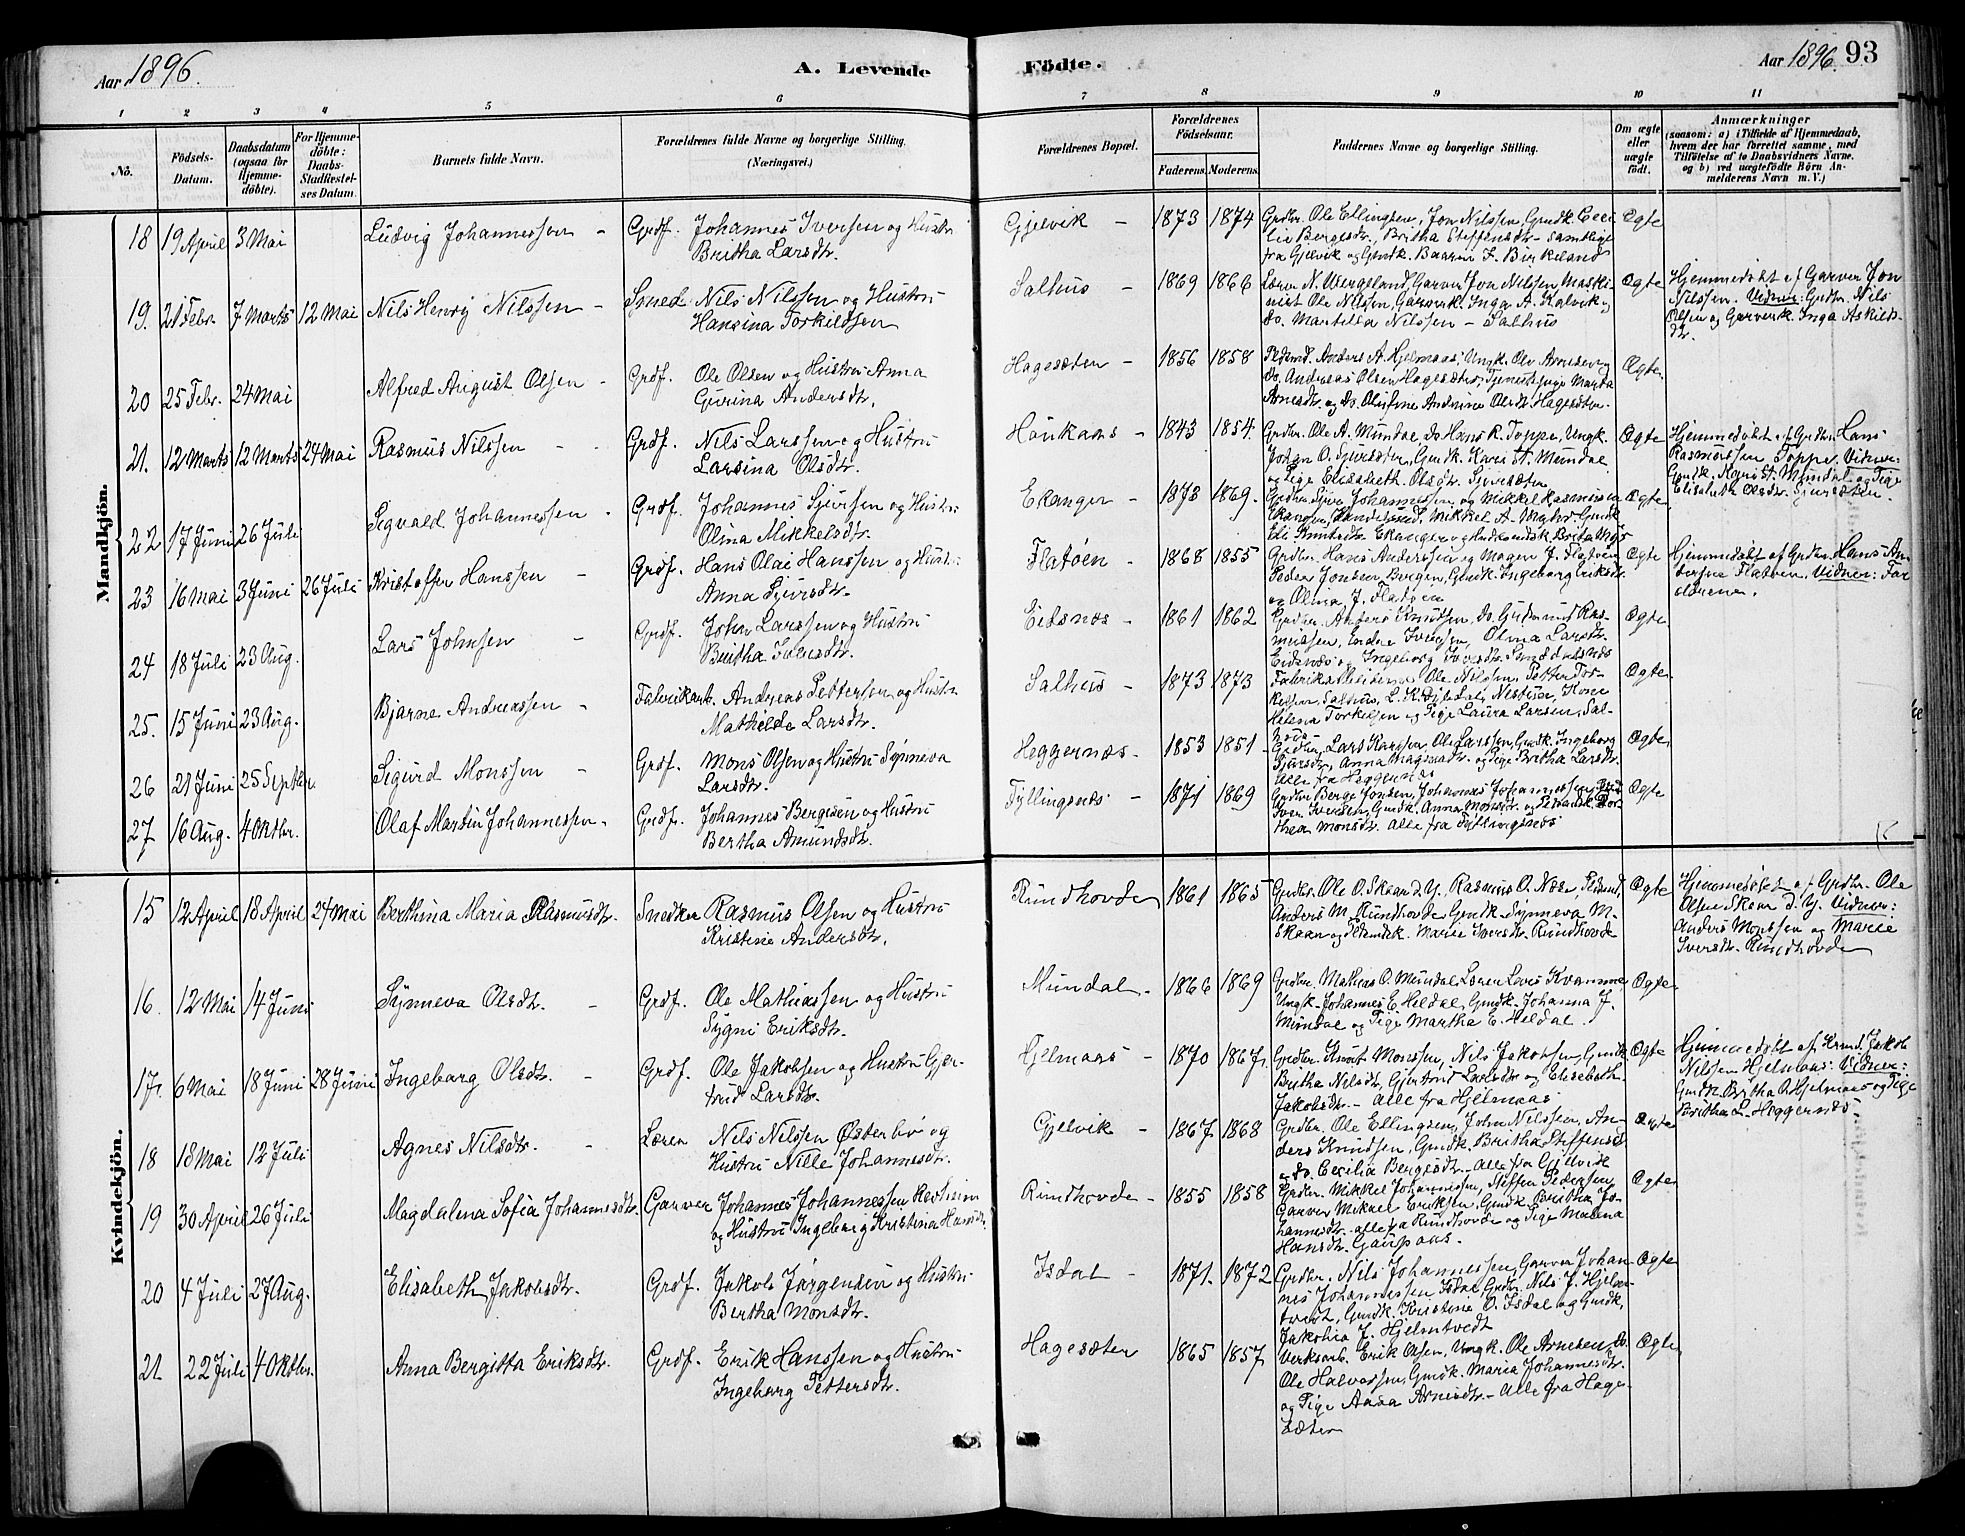 Aar 1896.
A. Levende
Födte.
Aar 1896. 93
1 2 3 4 5 6 7 8 9 10 11
No.
Födsels-
Datum.
Daabsdatum
(ogsaa for
Hjemme-
döbte).
For Hjemme-
döbte:
Daabs-
Stadfæstel-
ses Datum.
Barnets fulde Navn.
Forældrenes fulde Navne og borgerlige Stilling.
(Næringsvei.)
Forældrenes Bopæl.
Forældrenes
Födselsaar.
Faderens. Moderens.
Faddernes Navne og borgerlige Stilling.
Om ægte
eller
uægte
födt.
Anmærkninger
(saasom: a) i Tilfælde af Hjemmedaab,
hvem der har forrettet samme, med
Tilföielse af to Daabsvidners Navne,
og b) ved uægtefödte Börn An-
melderens Navn m. V.)
Mandkjön.
18 19 April 3 Mai Ludvig Johannessen - Grdf. Johannes Iversen og Hustru
Britha Larsdtr.
Gjelvik - 1873 1874 Grdbr. Ole Ellingsen, Jon Nilssen, Gmdk. Ceci
lie Bergesdtr., Britha Steffensdtr - samtlige
fra Gjelvik og Gmdk. Birkeland
Ægte
19. 21 Febr. 7 Marts 12 Mai Nils Henrij Nilssen - Smed Nils Nilssen og Hustru
Hansina Torkildsen
Salhus - 1869 1866 Lærer N. Wergeland, Garver Jon Nilsen, Maski
nist Ole Nilsen, Garverk. Inga A. Kalvik og
do. Martha Nilssen - Salhus
Ægte
Hjemmedøbt af Garver Jon
Nilssen. Vidner: Grdbr. Nils
Olsen og Garverk. Inga Askilds-
dtr.
20 25 Febr. 24 Mai Alfred August Olsen - Grdf. Ole Olsen og Hustru Anna
Gurina Andersdtr.
Hagesæter - 1856 1858 Anders A. Hjelmaas, Ungk. Ole Arnesen og
do. Andreas Olsen Hagesæter, Tjenestepige Marta
Arnesdtr. og do. Olufine Andrine Olsdtr. Hagesæter
Ægte
21. 12 Marts 12 Marts 24 Mai Rasmus Nilssen - Grdf. Nils Larssen og Hustru
Larsina Olsdtr.
Haukaas - 1843 1854. Grdbr. Ole A. Mundal, do Hans R. Toppe, Ungk.
Johan O. Sjursæter, Gmdk. Kari St. Mundal
og Pige Elisabeth Olsdtr. Sjursæter
Ægte
Hjemmedøbt af Grdbr. Hans
Rasmussen Toppe. Vidner:
Gmdk. Kari St. Mundal og Pige
Elisabeth Olsdtr. Sjursæter.
22 17 Juni 26 Juli Sigvald Johannessen - Grdf. Johannes Sjursen og Hustru
Olina Mikkelsdtr.
Ekanger - 1873 1869. Grdbr. Sjur Johannessen og Mikkel Rasmussen
Ekanger, Handelsmd. Mikkel A. Gmdk
Eli Knutsdtr. Ekanger og
Ægte
23 16 Mai 3 Juni 26 Juli Kristoffer Hanssen - Grdf. Hans Olai Hanssen og Hustru
Anna Sjursdtr.
Flatøen - 1868 1855 Grdbr. Hans Anderssen og Mogen J. Flatøen
Peder Jonsen Bergen, Gmdk. Ingeborg Eriksdtr.
og Olina J. Flatøen
Ægte
Hjemmedøbt af Grdbr. Hans An-
dersen Flatøen. Vidner: For
ældrene.
24 18 Juli 23 Aug. Lars Johnsen - Grdf. John Larssen og Hustru
Britha
Eidsnæs - 1861 1862 Grdbr. Anders Knudsen, do. Gudmund Ras-
mussen, Endre Iversen, Olina Larsdtr.
Eidsnæs og Ingeborg Iversdtr.
Ægte
25. 15 Juni 23 Aug. Bjarne Andreassen - Fabrikarb. Andreas Pettersen og Hustru
Mathilde Larsdtr.
Salhus - 1873 1873 Fabriksarbeiderne Ole Nilsen, Petter Tor-
kelsen, Salhus, L. K. Nestun, Kone
Helena Torkelsen og Pige Laura Larsen, Sal-
hus
Ægte
26 21 Juni 25 Septbr Sigurd Monssen - Grdf. Mons Olsen og Hustru Synneva
Larsdtr.
Heggernæs - 1853 1851 Grdbr. Lars Larssen, Ole Larssen, Gmdk. Ingeborg
Sjursdtr., Anna Magnedtr. og Pige Britha Larsdtr.
Alle fra Heggernæs
Ægte
27 16 Aug. 4 Oktbr. Olaf Martin Johannessen - Grdf. Johannes Bergesen og Hustru
Bertha Amundsdtr.
Fyllingsnes - 1871 1869 Grdbr. Berge Jonsen, Johannes Johannessen
Iver Iversen, Gmdk. Anna Monsdtr. og Dor-
thea Monsdtr. Alle fra Fyllingsnes
Ægte
Kvindekjön.
15 12 April 18 April 24 Mai Berthina Maria Rasmusdtr. Snedker Rasmus Olsen og Hustru
Kristine Andersdtr.
Rundhovde 1861 1865 Grdbr. Ole O. Skaar d. Y., Rasmus O. Næse,
Anders M. Rundhovde, Gmdk. Synneva M.
Skaar og Marie Iversdtr. Rundhovde
Ægte
Hjemmedøbt af Grdbr. Ole
Olsen Skaar d. Y. Vidner:
Anders Monssen og Marie
Iversdtr. Rundhovde
16. 12 Mai 14 Juni Synneva Olsdtr. - Grdf. Ole Mathiassen og Hustru
Sygni Eriksdtr.
Mundal - 1866 1869 Grdbr. Mathias O. Mundal, Lærer Lars Kvamme
Ungk. Johannes E. Heldal, Gmdk. Johanna J.
Mundal og Pige Martha E. Heldal.
Ægte
17. 6 Mai 18 Juni 28 Juni Ingeborg Olsdtr. - Grdf. Ole Jakobsen og Hustru Gjer-
trud Larsdtr.
Hjelmaas - 1870 1867. Grdbr. Knut Monssen, Nils Jakobsen, Gmdk
Britha Nilsdtr, Gjertrud Larsdtr og Elisabeth
Jakobsdtr. - Alle fra Hjelmaas
Ægte
Hjemmedøbt af Jakob
Nilssen Hjelmaas. Vidner:
Gmdk. Britha O. Hjelmaas og Pige
Britha L. Heggernæs.
18 18 Mai 12 Juli Agnes Nilsdtr. - Lærer Nils Nilssen Østerbø og
Hustru Nille Johannesdtr.
Gjelvik - 1867. 1868 Grdbr. Ole Ellingsen, John Nilssen, An-
ders Knudsen, Gmdk. Britha Steffensd
og do. Cecilia Bergesdtr. - Alle fra Gjelvik
Ægte
19 30 April 26 Juli Magdalena Sofia Johannesdtr. Garver Johannes Johannessen
og Hustru Ingeborg Kristina Hansdtr.
Rundhovde - 1855 1858 Grdbr. Mikkel Johannessen, Steffen Pedersen,
Garver Mikael Eriksen, Gmdk. Britha Jo-
hannesdtr. - alle fra Rundhovde og Pige Malena
Hansdtr. Gaupaas.
Ægte
20 4 Juli 27 Aug. Elisabeth Jakobsdtr. Grdf. Jakob Jørgensen og Hustru
Bertha Monsdtr.
Isdal - 1871. 1872 Grdbr. Nils Johannessen, Garver Johan-
nes Johannessen Isdal, Grdbr. Nils J. Hjelm-
tvedt, Gmdk. Kristine O. Isdal og Gmdk,
Jakobia J. Hjelmtvedt
Ægte
21. 22 Juli 4 Oktbr. Anna Bergitta Eriksdtr. Grdf. Erik Hanssen og Hustru
Ingeborg Pettersdtr.
Hagesæter 1865 1857. Verksarb. Erik Olsen, Ungk. Ole Arnesen, do.
Ole Halvorsen, Gmdk. Maria Johannesdtr.
og Pige Aasa Arnesdtr. - Alle fra Hage-
sæter
Ægte